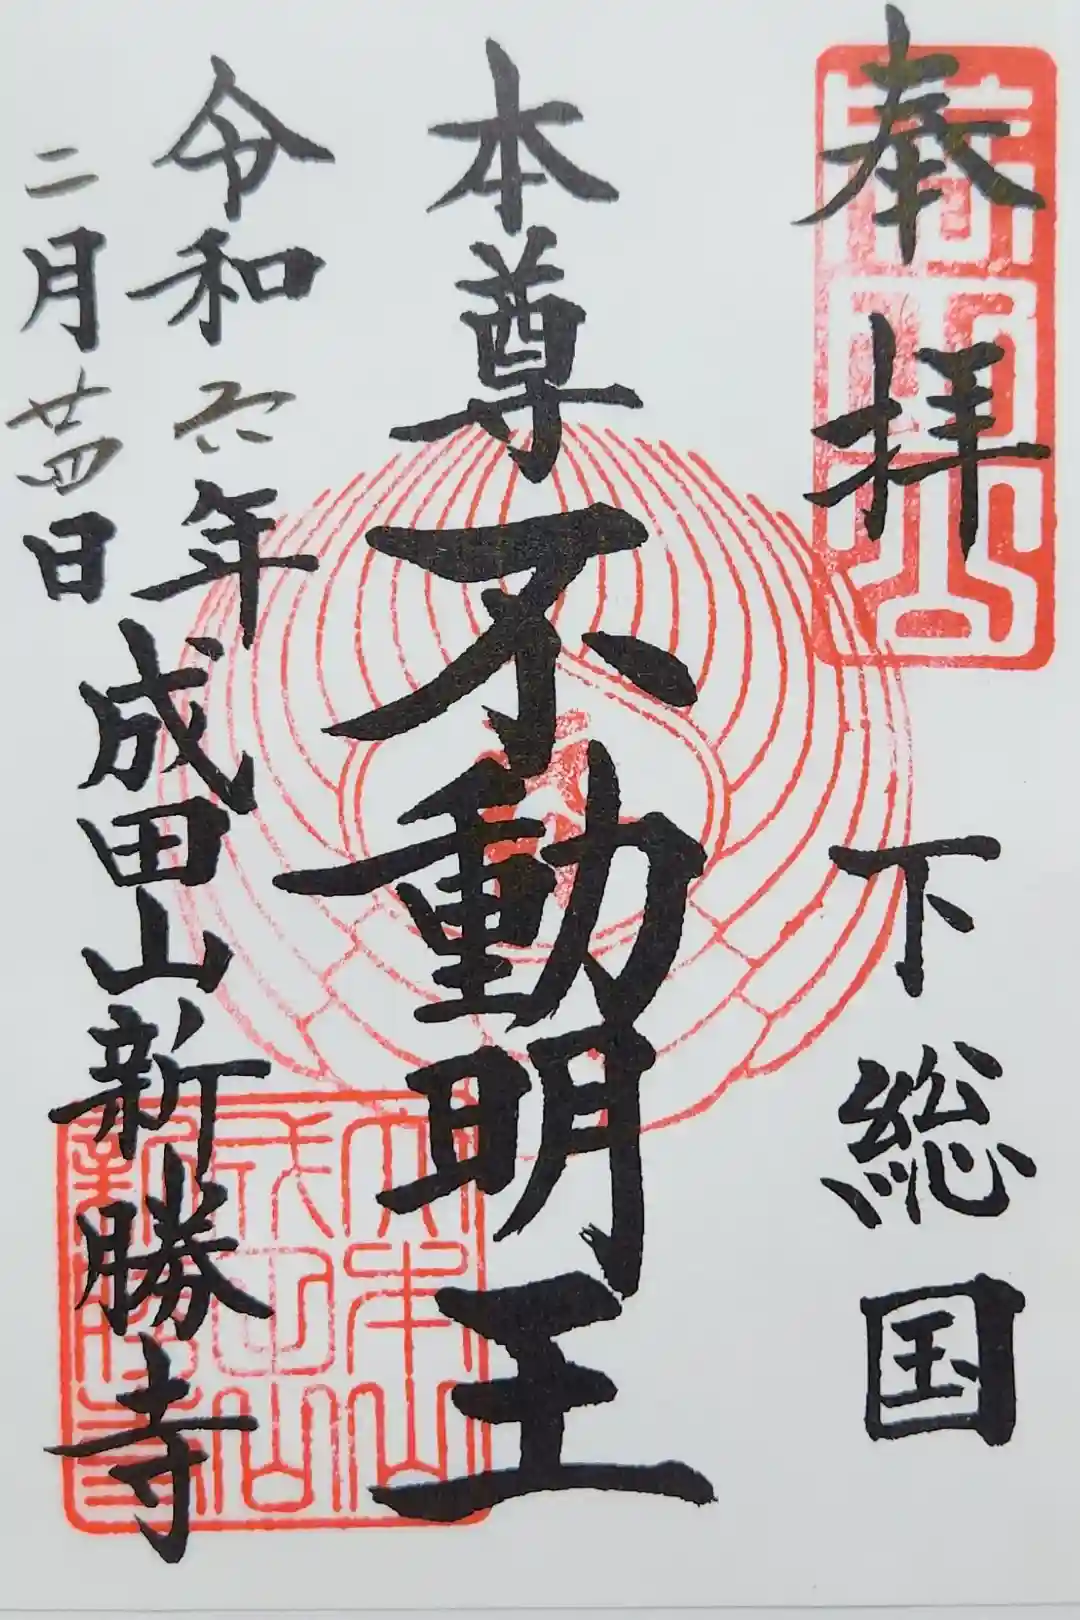 奉拝
下総国
本尊不動明王
令和六年
二月廿四日
成田山新勝寺
大本山
成田山
新勝寺